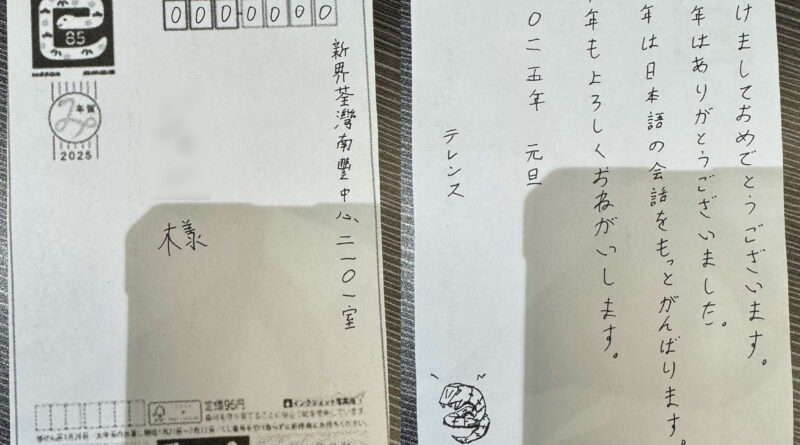 85
0000000
年賀
2025
新界荃灣南豐中心二一〇一室
様
定価95円
インクジェット写真用
けましておめでとうございます。
年はありがとうございました。
年は日本語の会話をもっとがんばります。
年もよろしくおねがいします。
〇二五年 元旦
テレンス